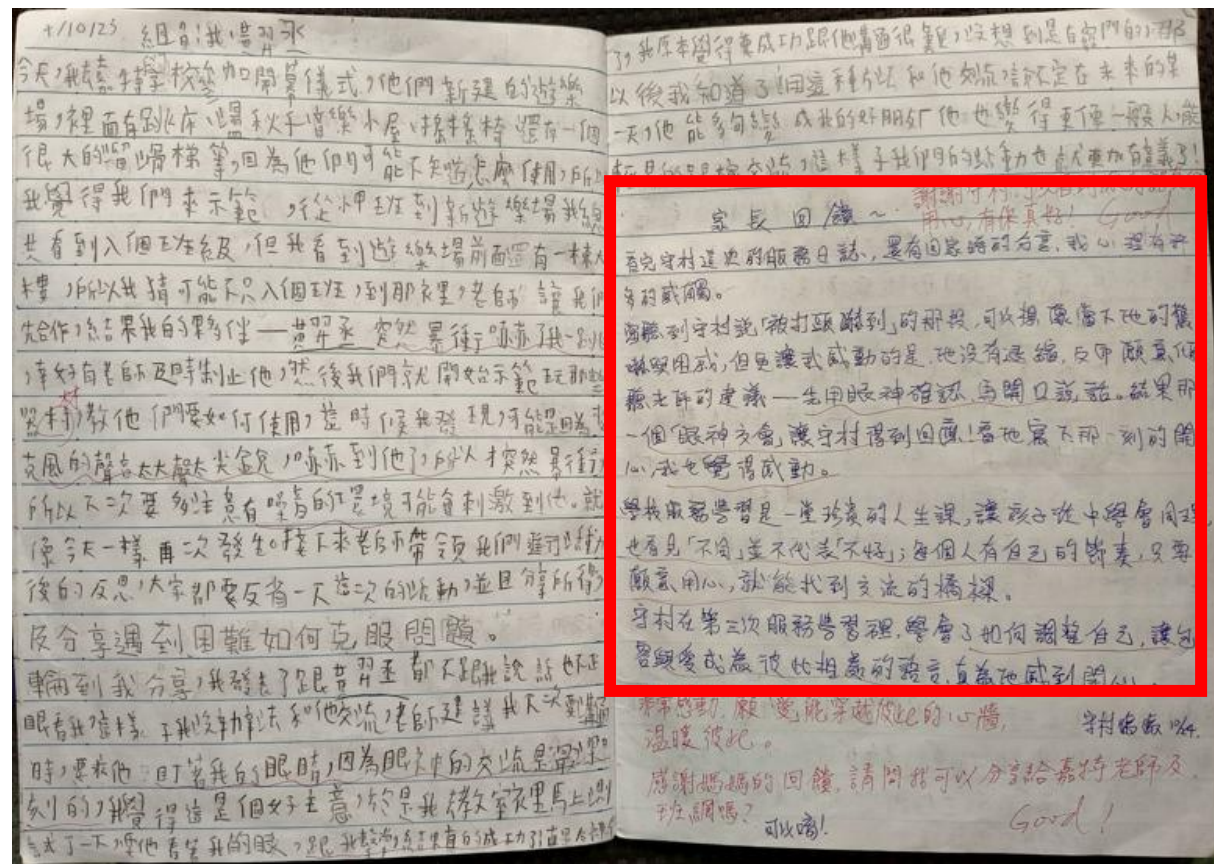 10/23 組員:我、黃羿丞
今天,我去嘉特學校參加開幕儀式,他們新建的遊樂
場,裡面有跳床、盪秋千、音樂小屋、搖搖椅還有一個
很大的溜滑梯等,因為他們可能不知道怎麼使用,所以
我覺得我們來示範,從小甲班到新遊樂場我總
共看到八個班級,但我看到遊樂場前面還有一棟大
樓,所以我猜可能不只八個班,到那裡,老師讓我們
先合作,結果我的夥伴——黃羿丞突然暴衝,嚇了我一跳
,幸好有老師及時制止他,然後我們就開始示範玩那些
器材,教他們要如何使用,這時候我發現,可能是因為麥
克風的聲音太大聲太尖銳,嚇到他了,所以才突然暴衝,
所以下次要多注意有噪音的環境可能會刺激到他。就
像今天一樣再次發生。接下來老師帶領我們進行活動
後的反思,大家都要反省一下這次的活動,並且分享所得
及分享遇到困難如何克服問題。
輪到我分享,我發表了跟黃羿丞都不跟我說話也不正
眼看我這樣,我沒辦法和他交流,老師建議我下次到
時,要求他盯著我的眼睛,因為眼神的交流是最深
刻的,我覺得這是個好主意,於是我在教室裡馬上測
試了一下,要他看著我的眼,跟我擊掌,結果真的成功了
了,我原本覺得要成功跟他溝通很難,沒想到是有竅門的,
以後我知道了個這種方法和他交流,說不定在未來的某
一天,他能夠變成我的好朋友,他也變得更像一般人,能
這樣子我們的努力也就更加有意義了!
謝謝守村
用心,有你真好! Good
家長回饋~
看完守村這次的服務日誌,還有回家時的分享,我心裡有許
多的感觸。
當聽到守村說「被打頭嚇到」的那段,可以想像當下他的驚
嚇與困惑,但更讓我感動的是,他沒有退縮,反而願意傾
聽老師的建議——先用眼神確認,再開口說話。結果那
一個「眼神交會」讓守村得到回應!當他寫下那一刻的開
心,我也覺得感動。
學校服務學習是一堂珍貴的人生課,讓孩子從中學會同理,
也看見「不同」並不代表「不好」;每個人有自己的節奏,只要
願意用心,就能找到交流的橋樑。
守村在第三次服務學習裡,學會了如何調整自己,讓包
容與愛成為彼此相處的語言,真為他感到開心。
守村媽媽 10/24.
非常感動,願愛能穿越彼此的心牆,
溫暖彼此。
感謝媽媽的回饋,請問我可以分享給嘉特老師及
班網嗎?
可以唷!
Good!